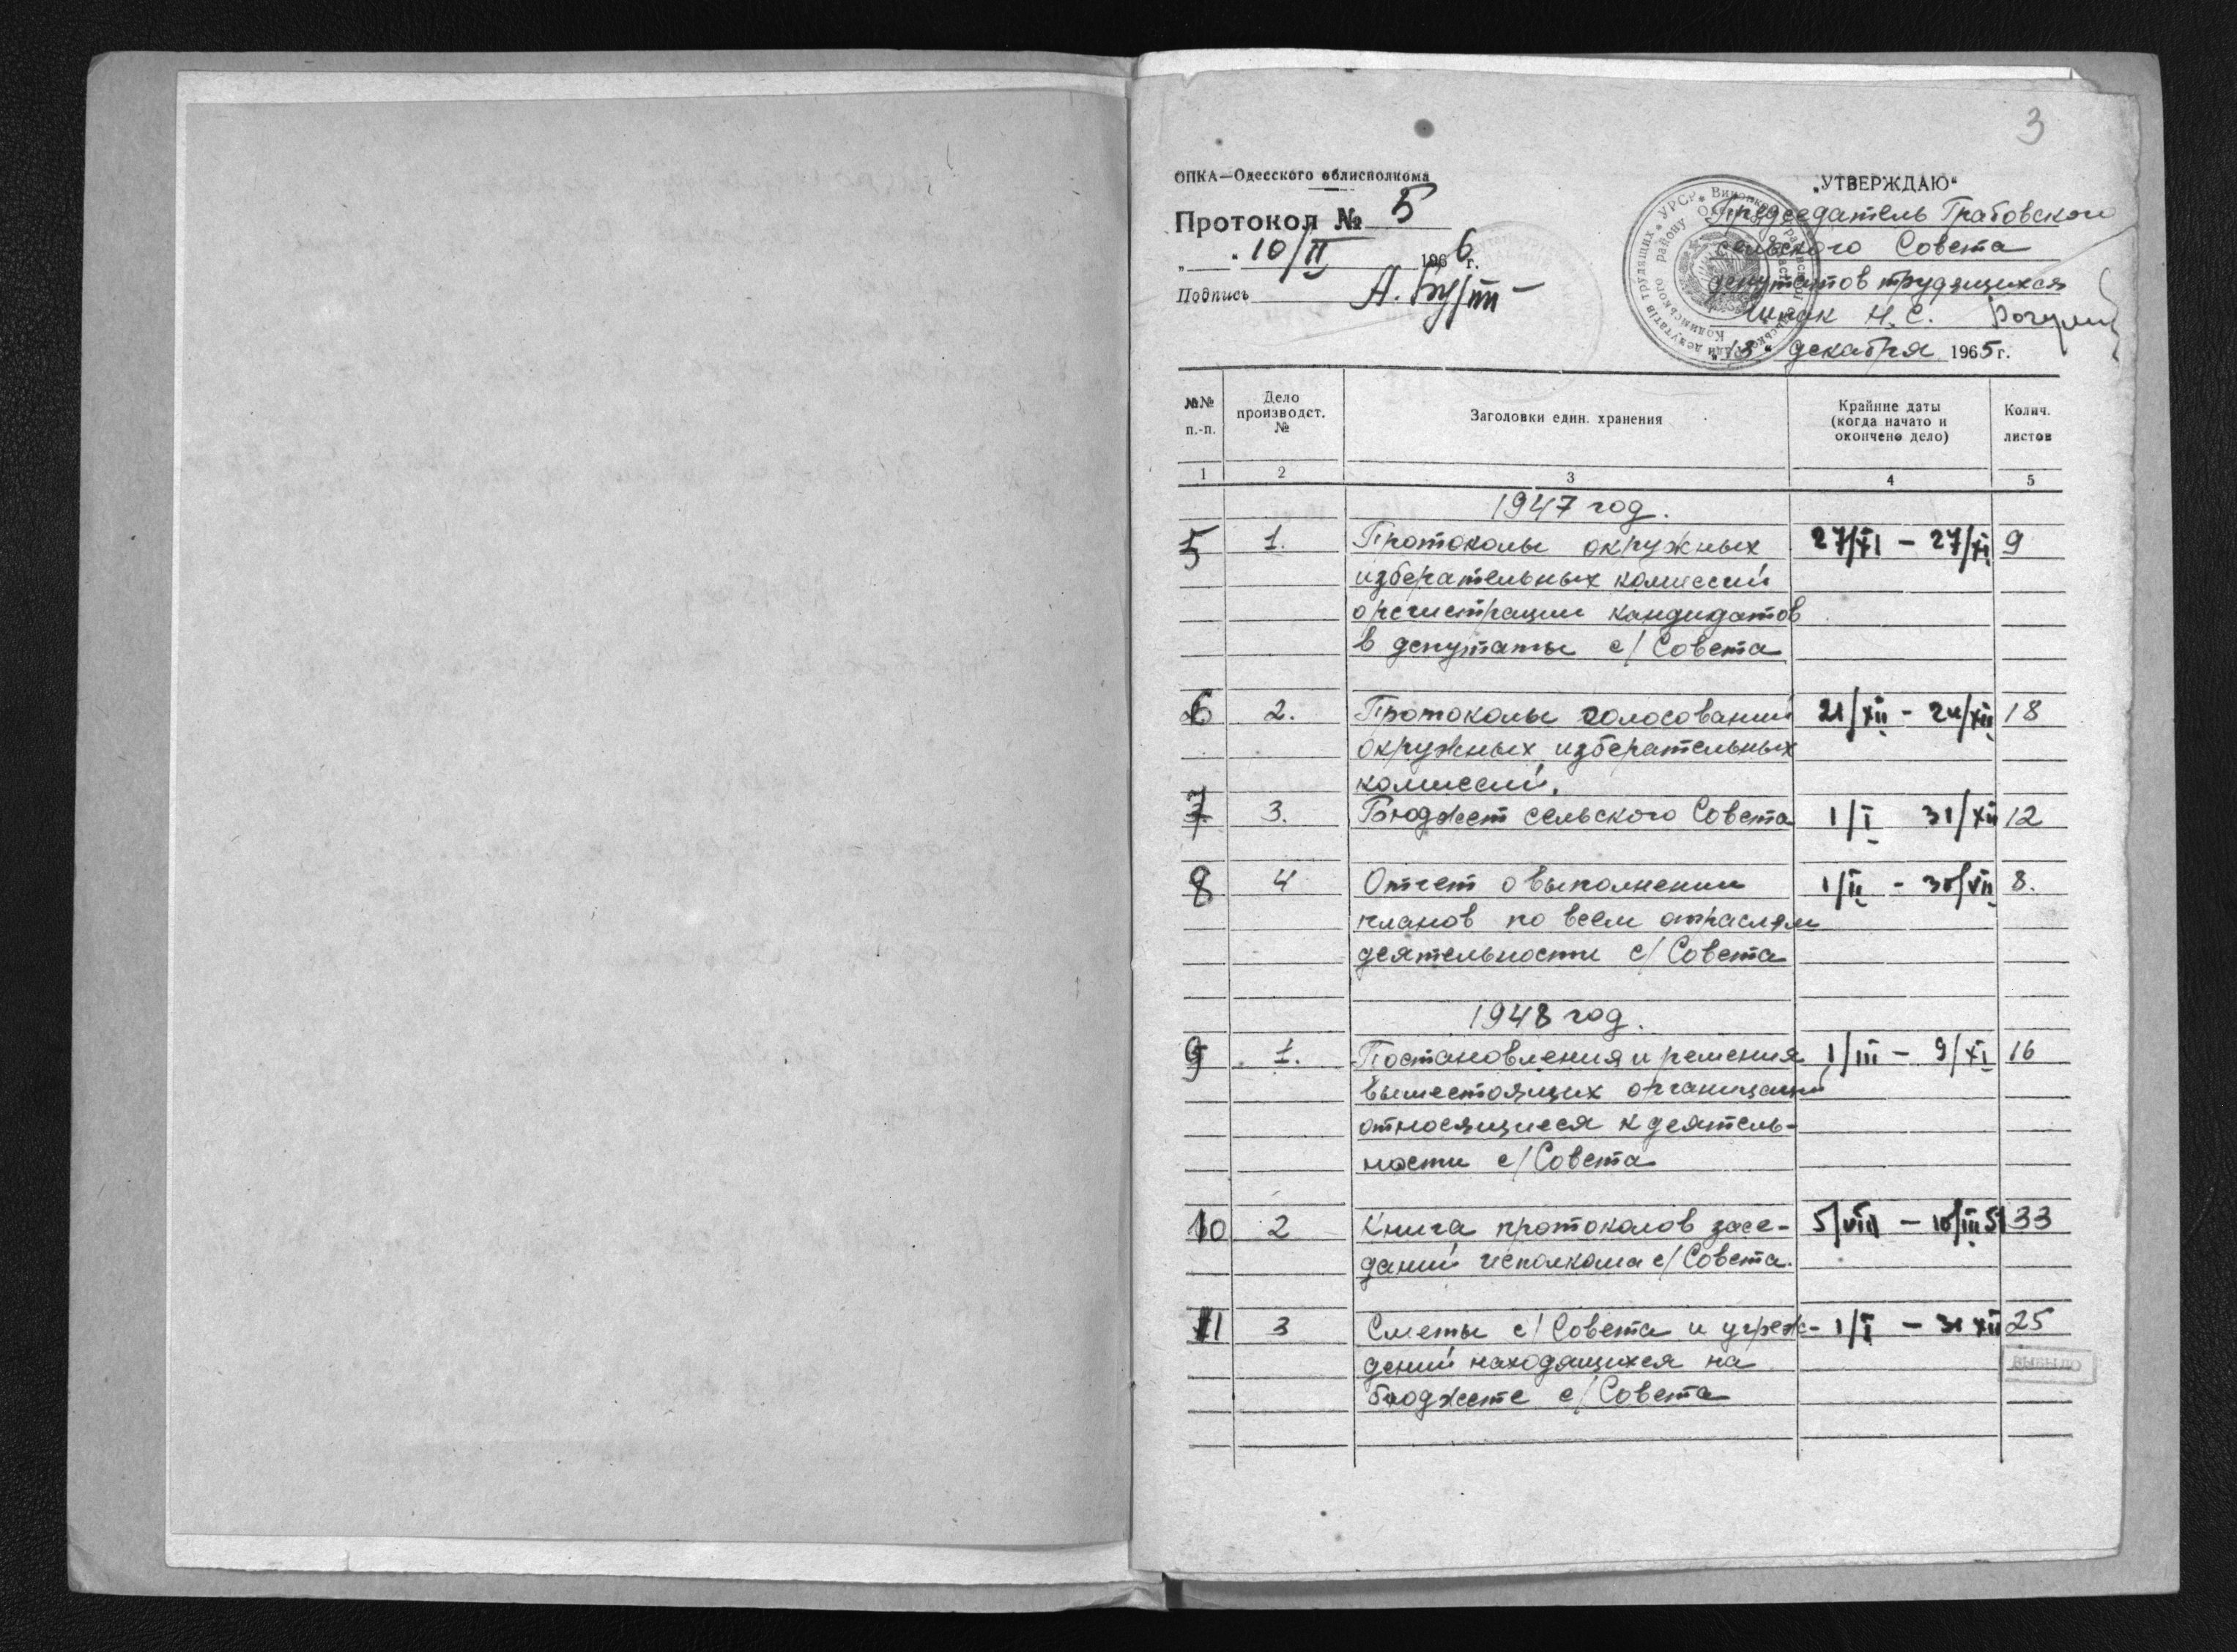 3
ОПКА—Одесского облисполкома
Протокол № 5
„ “ 10/II 1966 г.
Подпись
„УТВЕРЖДАЮ“
Председатель Грабовского
сельского Совета
депутатов трудящихся
Шпак Н.С.
„15“ декабря 1965 г.
№№ п.-п.
Дело производст. №
Заголовки един. хранения
Крайние даты (когда начато и окончено дело)
Колич. листов
1 2 3 4 5
1947 год.
5 1. Протоколы окружных 27/XI – 27/XI 9
изберательных комиссий
о регистрации кандидатов
в депутаты с/Совета
6 2. Протоколы голосований 21/XII - 21/XII 18
окружных изберательных
комиссий.
7 3. Бюджет сельского Совета 1/I 31/XII 12
8 4 Отчет о выполнении 8.
планов по всем отраслям
деятельности с/Совета
1948 год.
9 1. Постановления и решения 1/III – 9/XI 16
вышестоящих организаций
относящиеся к деятель-
ности с/Совета
10 2 Книга протоколов засе- 5/VIII – 33
даний исполкома с/Совета.
11 3 Сметы с/Совета и учреж- 1/I – 31 XII 25
дений находящихся на
бюджете с/Совета